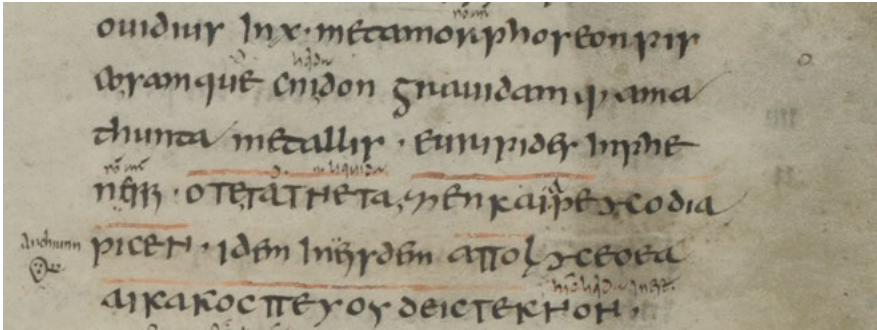 ouidius in x · metamorphoseon pis
cosamque cnidon grauidamq; ama
thunta metallis · euripides in phe
n liquida
nissis · ΟΤΕΤΑΤΝΕΤΑ ΜΕΝ ΚΑΙ ΡΕΥCΟΔΙΑ
ΡΙCΕΝ · idem in eisdem ΑΠΟΛ ΥCΕΟΕΑ
ΑΙΚΑΚΟC ΠΕΥΟΥ ΔΕΙC ΤΕΚΝΟΝ ·